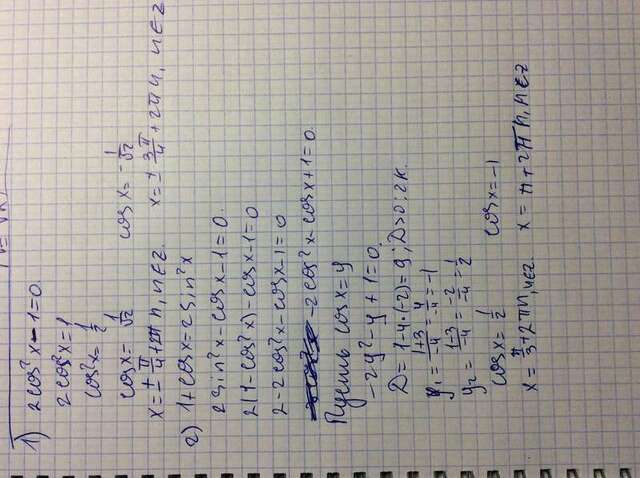 1) 2cos²x - 1 = 0.
2cos²x = 1
cos²x = 1/2
cosx = 1/√2    cosx = -1/√2
x = ± π/4 + 2πn, n∈z.    x = ± 3π/4 + 2πn, n∈z
2) 1 + cosx = 2sin²x
2sin²x - cosx - 1 = 0.
2(1 - cos²x) - cosx - 1 = 0
2 - 2cos²x - cosx - 1 = 0
-2cos²x - cosx + 1 = 0.
Пусть cosx = y
-2y² - y + 1 = 0.
D = 1 - 4·(-2) = 9; D>0; 2к.
y₁ = (1+3)/-4 = 4/-4 = -1
y₂ = (1-3)/-4 = -2/-4 = 1/2
cosx = 1/2    cosx = -1
x = π/3 + 2πn, n∈z.    x = π + 2πn, n∈z